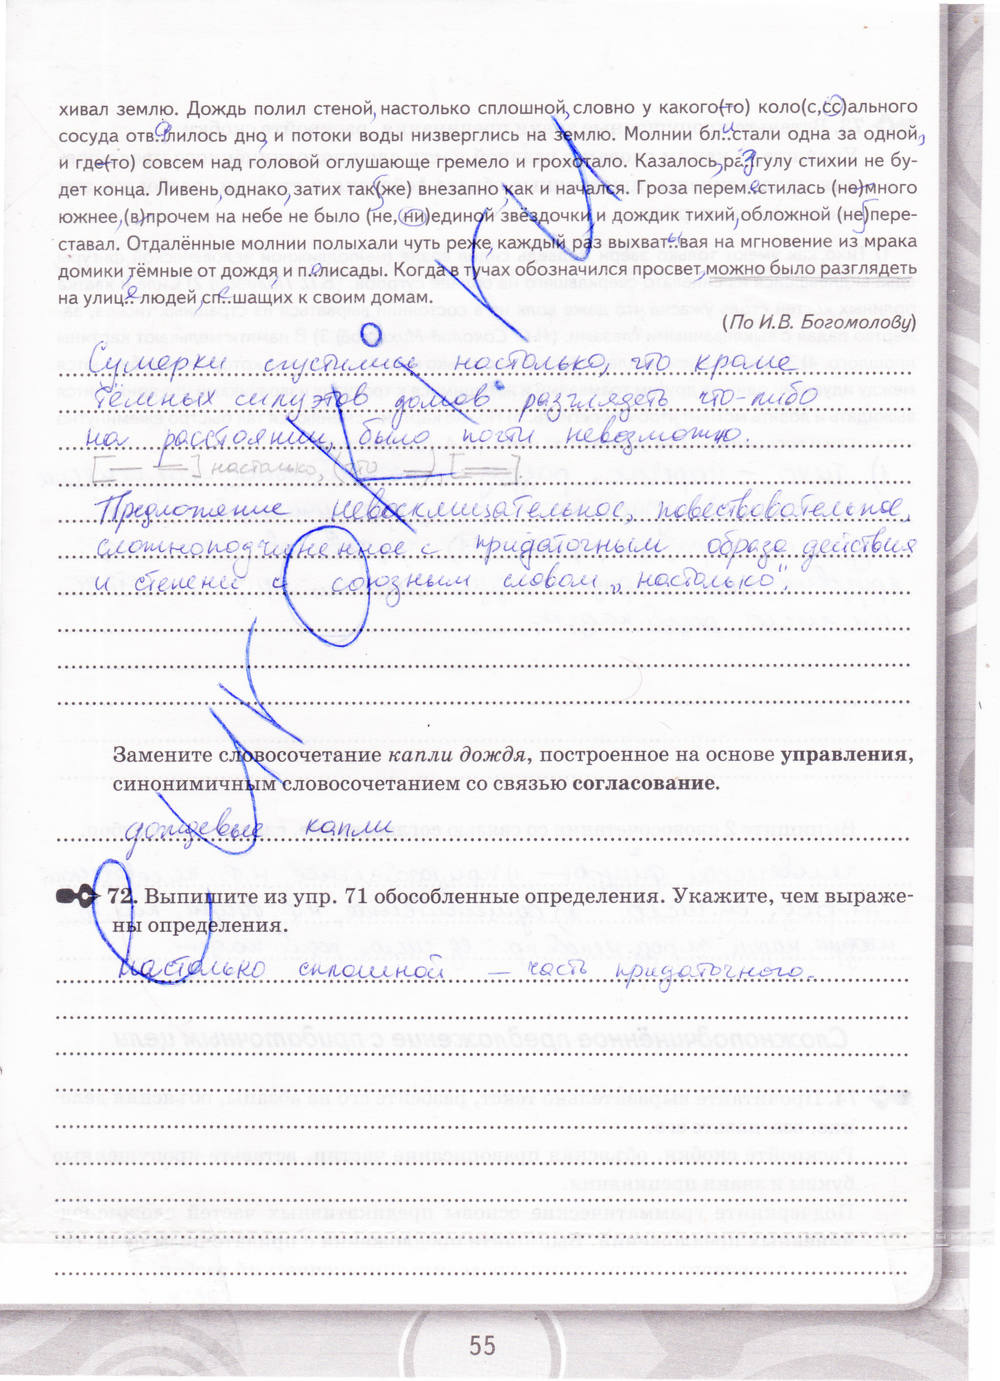 хивал землю. Дождь полил стеной, настолько сплошной, словно у какого(-то) коло(с,сс)ального
сосуда отв..лилось дно, и потоки воды низверглись на землю. Молнии бл..и стали одна за одной,
и где(-то) совсем над головой оглушающе гремело и грохотало. Казалось, разгулу стихии не бу-
дет конца. Ливень, однако, затих так(же) внезапно, как и начался. Гроза перем..естилась (не)много
южнее, (в)прочем на небе не было (не, ни)единой звёздочки и дождик тихий, обложной (не)пере-
ставал. Отдалённые молнии полыхали чуть реже, каждый раз выхват..ывая на мгновение из мрака
домики тёмные от дождя и палисады. Когда в тучах обозначился просвет, можно было разглядеть
на улице людей спешащих к своим домам.
(По И.В. Богомолову)
Сумерки сгустились настолько, что кроме
тёмных силуэтов домов разглядеть что-либо
на расстоянии, было почти невозможно.
[— =] настолько, (что =) [=].
Предложение невосклицательное, повествовательное,
сложноподчиненное с придаточным образа действия
и степени с союзным словом „настолько".
Замените словосочетание капли дождя, построенное на основе управления,
синонимичным словосочетанием со связью согласование.
дождевые капли
72. Выпишите из упр. 71 обособленные определения. Укажите, чем выраже-
ны определения.
настолько сплошной — часть придаточного.
55